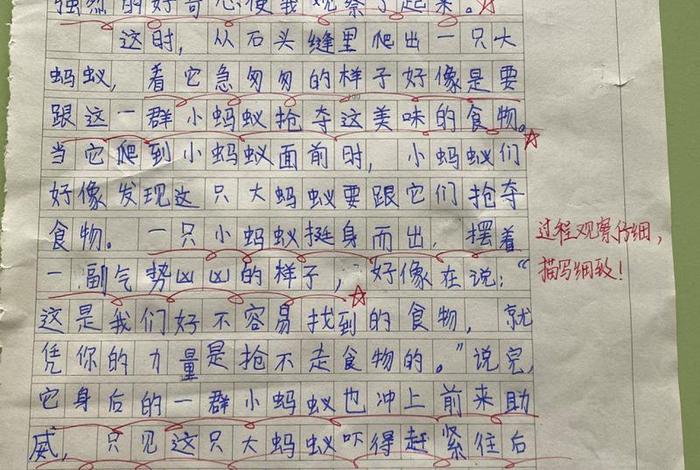 强烈的好奇心使我观察了起来。
这时，从石头缝里爬出一只大
蚂蚁，看它急匆匆的样子好像是要
跟这一群小蚂蚁抢夺这美味的食物。
当它爬到小蚂蚁面前时，小蚂蚁们
好像发现这只大蚂蚁要跟它们抢夺
食物。一只小蚂蚁挺身而出，摆着
一副气势凶凶的样子，好像在说：“
这是我们好不容易找到的食物，就
凭你的力量是抢不走食物的。”说完，
它身后的一群小蚂蚁也冲上前来助
威，只见这只大蚂蚁吓得赶紧往后
过程观察仔细，
描写细致！